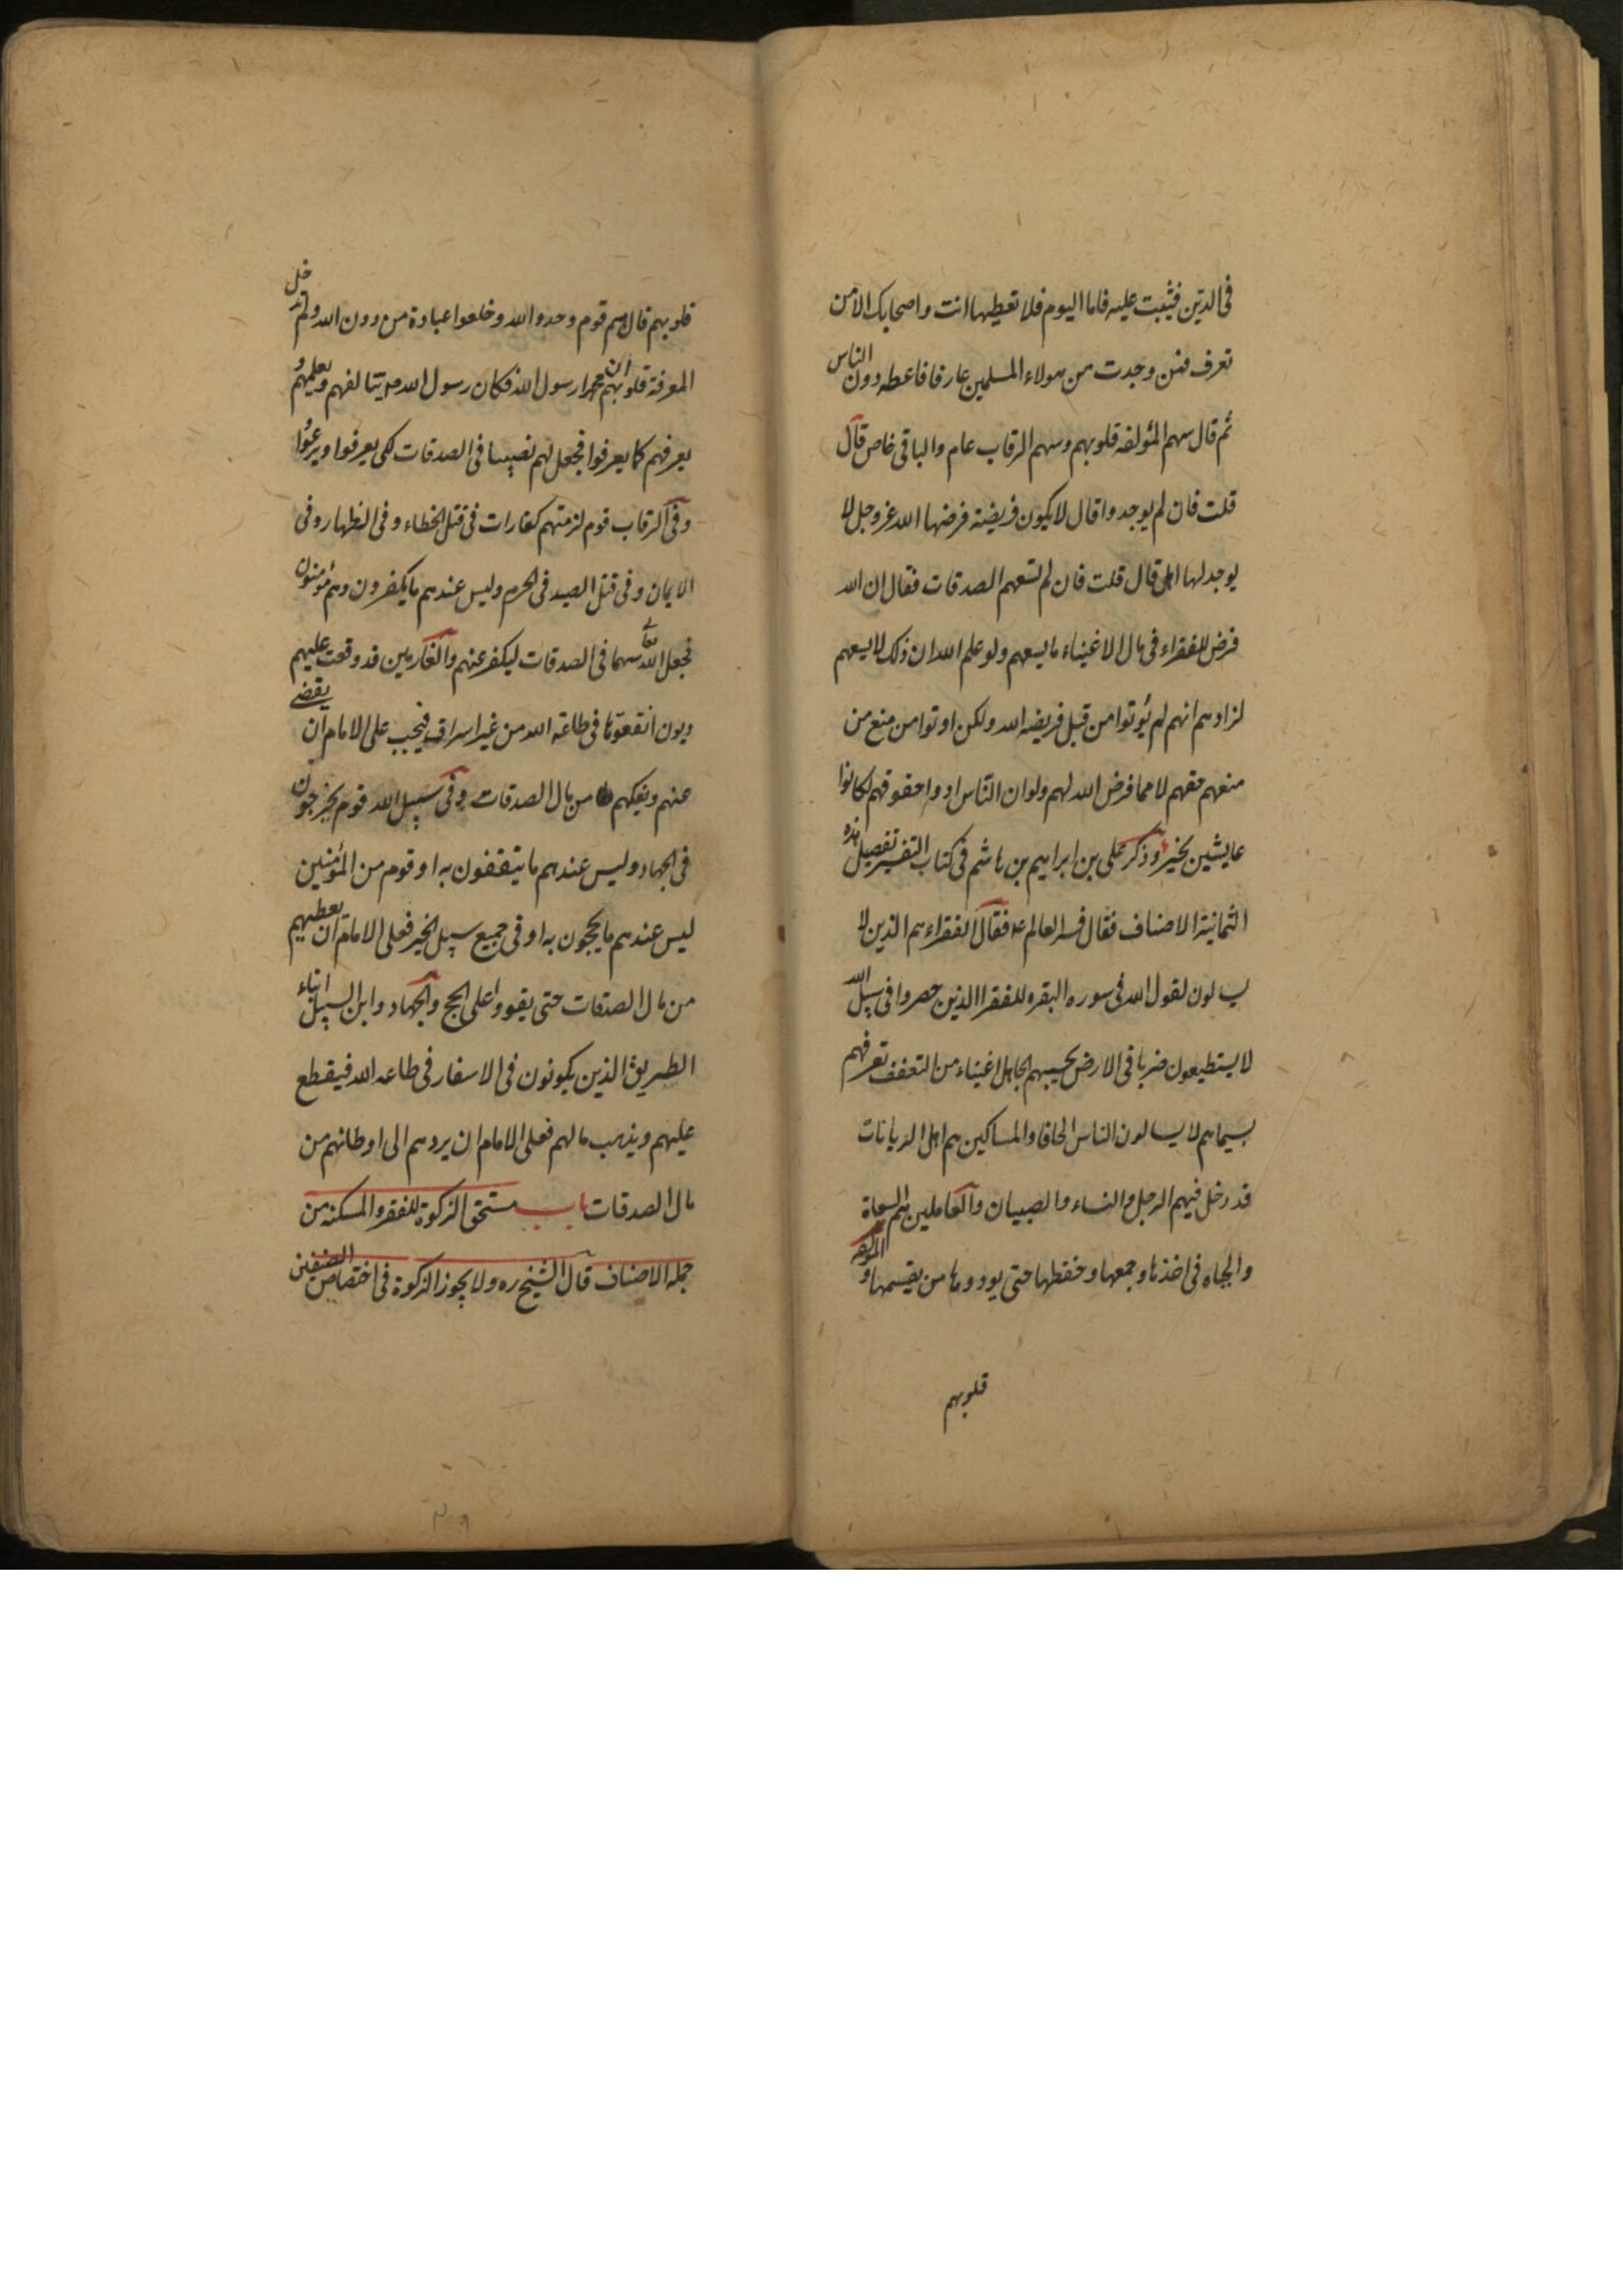 فى الدين فيثبت عليه فاما اليوم فلا تعطيها انت واصحابك الا من
تعرف فمن وجدت من هولاء المسلمين عارفا فاعطه دون الناس
ثم قال سهم المؤلفه قلوبهم وسهم الرقاب عام والباقى خاص قال
قلت فان لم يوجدوا قال لا يكون فريضة فرضها الله عز وجل لا
يوجد لها اهل قال قلت فان لم تسعهم الصدقات فقال ان الله
فرض للفقراء فى مال الاغنياء ما يسعهم ولو علم الله ان ذلك لا يسعهم
لزادهم انهم لم يؤتوا من قبل فريضه الله ولكن اوتوا من منع من
منعهم حقهم لا مما فرض الله لهم ولو ان الناس ادوا حقوقهم لكانوا
عايشين بخير وذكر على بن ابراهيم بن هاشم فى كتاب التفسير تفصيل هذه
الثمانية الاصناف فقال فسر العالم ع فقال الفقراء هم الذين لا
يسالون لقول الله فى سوره البقره للفقرا الذين حصروا فى سبيل الله
لا يستطيعون ضربا فى الارض يحسبهم الجاهل اغنياء من التعفف تعرفهم
بسيماهم لا يسالون الناس الحافا والمساكين هم اهل الديانات
قد دخل فيهم الرجل والنساء والصبيان والعاملين هم السعاة
والجباه فى اخذها وجمعها وحفظها حتى يودوها من يقسمها والمؤلفه
قلوبهم
قلوبهم قال هم قوم وحدوا الله وخلعوا عبادة من دون الله ولم تدخل
المعرفة قلوبهم ان محمدا رسول الله فكان رسول الله ص يتالفهم ويعلمهم و
يعرفهم كما يعرفوا فجعل لهم نصيبا فى الصدقات لكى يعرفوا ويرعوا
وفى الرقاب قوم لزمتهم كفارات فى قتل الخطاء وفى الظهار وفى
الايمان وفى قتل الصيد فى الحرم وليس عندهم ما يكفرون وهم مؤمنون
فجعل الله تعا سهما فى الصدقات ليكفر عنهم والغارمين قد وقعت عليهم
ديون انفقوها فى طاعة الله من غير اسراف فيجب على الامام ان يقضى
عنهم ويفكهم من مال الصدقات وفى سبيل الله قوم يخرجون
فى الجهاد وليس عندهم ما يتقففون به او قوم من المؤمنين
ليس عندهم ما يحجون به او فى جميع سبيل الخير فعلى الامام ان يعطيهم
من مال الصدقات حتى يقووا على الحج والجهاد وابن السبيل ابناء
الطريق الذين يكونون فى الاسفار فى طاعه الله فيقطع
عليهم ويذهب مالهم فعلى الامام ان يردهم الى اوطانهم من
مال الصدقات باب مستحق الزكوة للفقر والمسكنة من
جملة الاصناف قال الشيخ ره ولا يجوز الزكوة فى اختصاص الصنفين